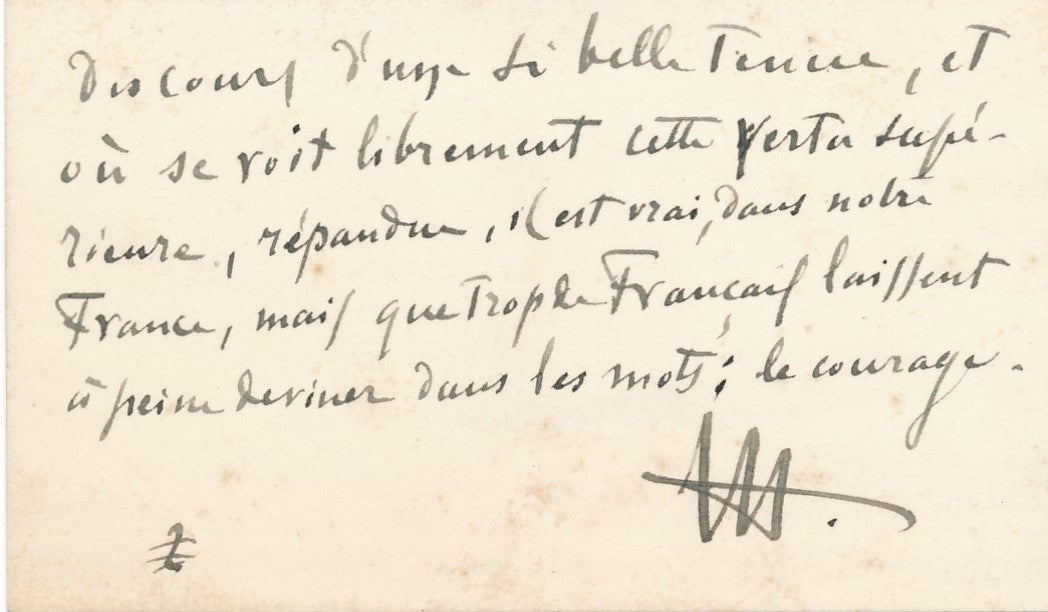 Discours d'une si belle tenue, et
où se voit librement cette vertu supé-
rieure, répandue, il est vrai, dans notre
France, mais que trop de Français laissent
à peine deviner dans les mots : le courage.